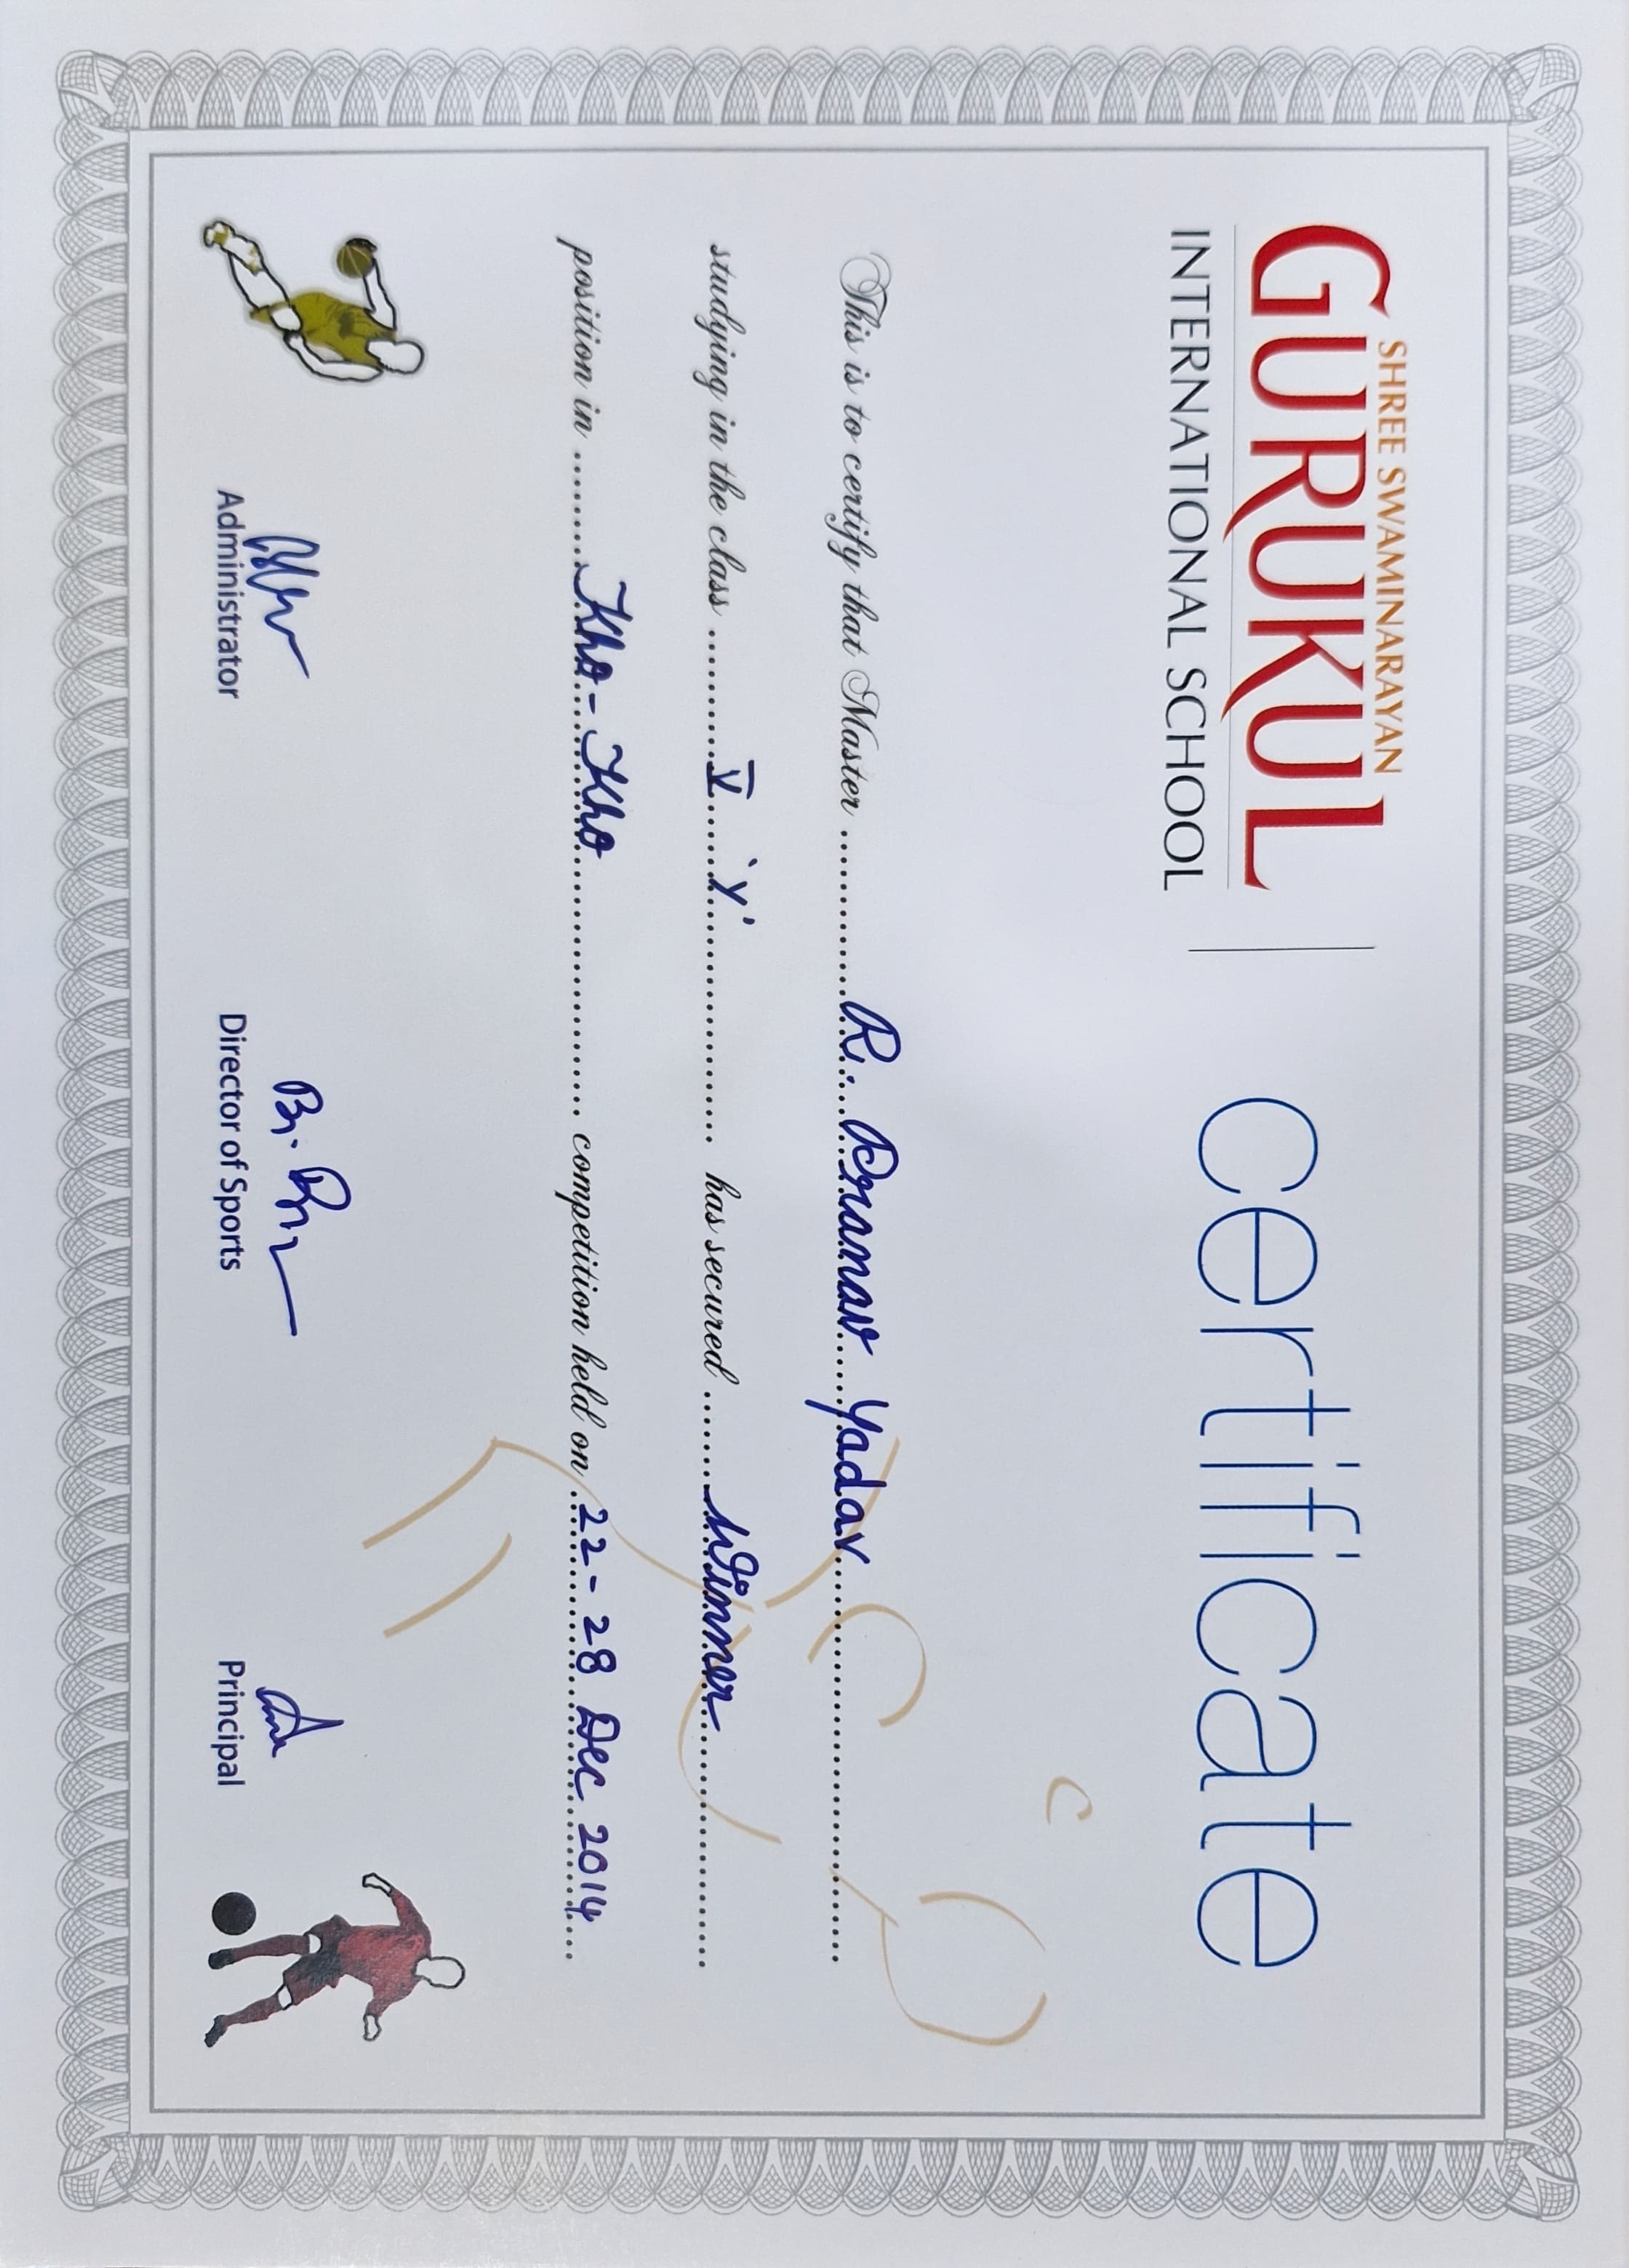 SHREE SWAMINARAYAN
GURUKUL
INTERNATIONAL SCHOOL
certificate
This is to certify that Master ........ R. Pranav Yadav ........
studying in the class ........ V 'Y' ........ has secured ........ Winner ........
position in ........ Kho-Kho ........ competition held on ........ 22-28 Dec 2014 ........
Administrator Director of Sports Principal